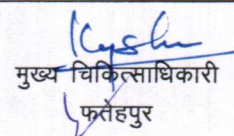 मुख्य चिकित्साधिकारी
फतेहपुर